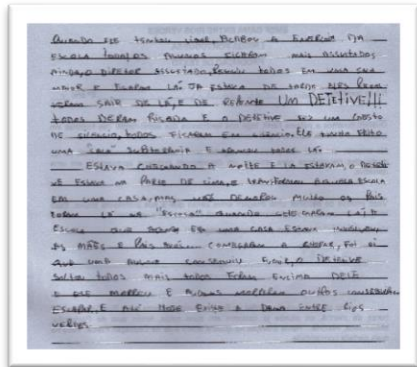 QUANDO ELE TENTOU LIGAR, ACABOU A ENERGIA DA
ESCOLA TODA, OS ALUNOS FICARAM MAIS ASSUSTADOS
AINDA, O DIRETOR ASSUSTADO, REUNIU TODOS EM UMA SALA
MAIOR E FICARAM LÁ, JA ESTAVA DE TARDE
SAIR DE LÁ, E DE REPENTE UM DETETIVE!!!
TODOS DERAM RISADA E O DETETIVE FEZ UM GESTO
DE SILENCIO, TODOS FICARAM EM SILENCIO, ELE TINHA FEITO
UMA "SALA" SUBTERRANIA E LEVOU TODOS LÁ
ESTAVA CHEGANDO A NOITE E LA ESTAVAM, O DETETI
VE ESTAVA NA PARTE DE CIMA, E TRANSFORMOU AQUELA ESCOLA
EM UMA CASA, MAS NÃO DEMOROU MUITO OS PAIS
FORAM LÁ NA "ESCOLA" QUANDO CHEGARAM LÁ A
ESCOLA QUE AGORA ERA UMA CASA ESTAVA
AS MÃES E PAIS COMEÇARAM A CHORAR, FOI AI
QUE UMA ALUNA CONSEGUIU FUGIR, O DETETIVE
SOLTOU TODOS MAIS TODOS FORAM ENCIMA DELE
E ELE MORREU E ALGUNS MORRERAM OUTROS CONSEGUIRAM
ESCAPAR, E ATÉ HOJE EXISTE A DAMA ENTRE RIOS
VERDES